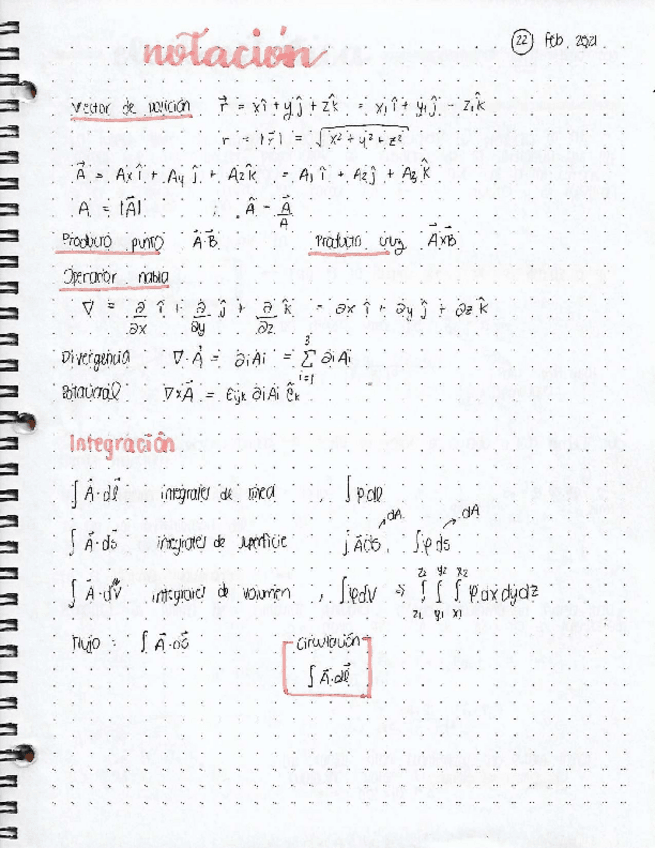 notación
22 Feb. 2021
Vector de posición r⃗ = xî + yĵ + zk̂ = x₁î + y₁ĵ - z₁k̂
r = |r⃗| = √(x² + y² + z²)
A⃗ = Axî + Ay ĵ + Azk̂ = A₁ î + A₂ĵ + A₃ k̂
A = |A⃗| ; Â = A⃗/A
Producto punto A⃗·B⃗ Producto cruz A⃗×B⃗
Operador nabla
∇ = ∂/∂x î + ∂/∂y ĵ + ∂/∂z k̂ = ∂x î + ∂y ĵ + ∂z k̂
Divergencia ∇·A⃗ = ∂iAi = Σ_{i=1}^{3} ∂iAi
Rotacional ∇×A⃗ = Eijk ∂iAi êk
Integración
∫ A⃗·dl⃗ integrales de línea , ∫ φdl
∫ A⃗·ds⃗ integrales de superficie ∫ A⃗ds, → dA ∫φds → dA
∫ A⃗·dV⃗ integrales de volumen , ∫φdv ⇒ ∫_{z1}^{z2} ∫_{y1}^{y2} ∫_{x1}^{x2} φ dxdydz
Flujo : ∫ A⃗·ds⃗
Circulación
∫ A⃗·dl⃗